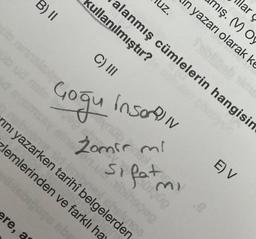 mış. (V) Oy
ın yazarı olarak ke
luz.
alanmış cümlelerin hangisin
kullanılmıştır?
B) II
C) III
D) IV
E) V
Çoğu insan
Zamir mi
sıfat mı
yazarken tarihî belgelerden
lerinden ve farklı ha
ere, a